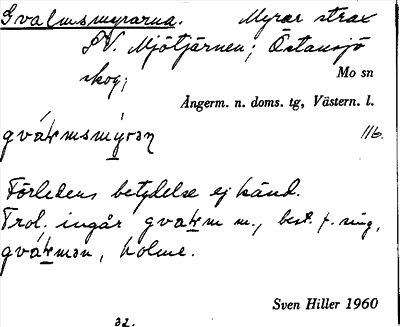 Gvalmsmyrarna. Myrar strax
SV. Mjötjärnen; Östansjö
skog;
Mo sn
Ångerm. n. doms. tg, Västern. l.
gváḷmsmýrəṇ 116.
Förledens betydelse ej känd.
Trol. ingår gvaḷm m., best. f. sing,
gváḷmən, holme.
Sven Hiller 1960
32.